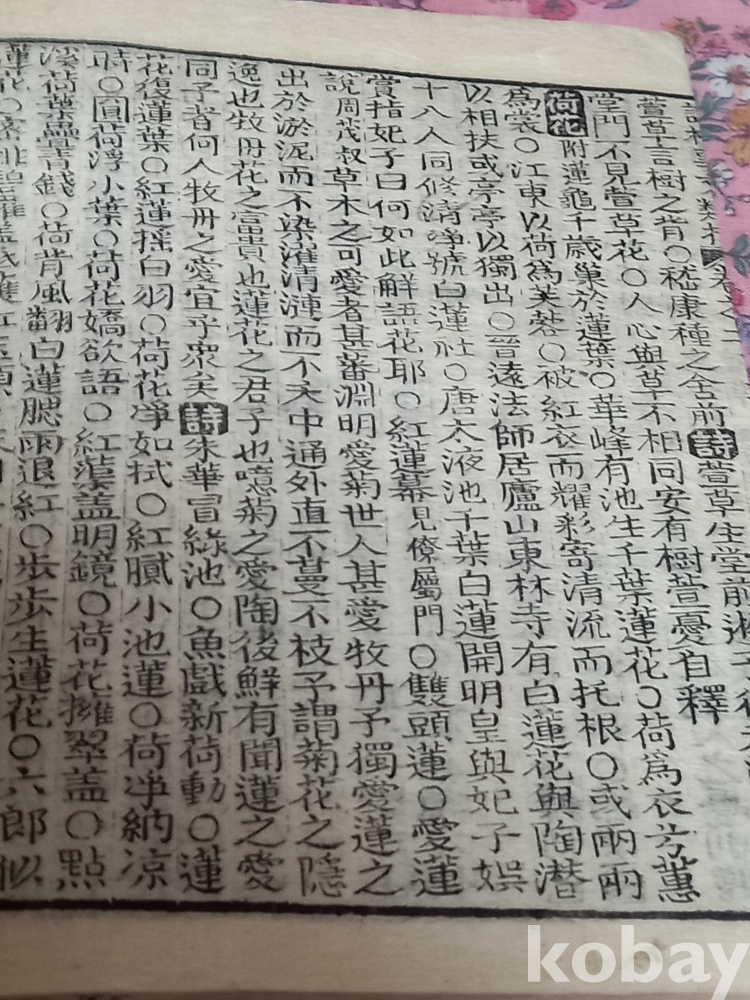 萱草言樹之背○嵇康種之舍前詩萱草生堂前
堂門不見萱草花○人心與草不相同安有樹萱憂自釋
荷花附蓮龜千歲巢於蓮葉○華峰有池生千葉蓮花○荷爲衣芳蕙
爲裳○江東以荷爲芙蓉○被紅衣而耀彩寄清流而托根○或兩兩
以相扶或亭亭以獨出○晉遠法師居廬山東林寺有白蓮花與陶潛
十八人同修清淨號白蓮社○唐太液池千葉白蓮開明皇與妃子娯
賞指妃子曰何如此解語花耶○紅蓮幕見僚屬門○雙頭蓮○愛蓮
說周茂叔草木之可愛者甚蕃淵明愛菊世人甚愛牧丹予獨愛蓮之
出於淤泥而不染濯清漣而不夭中通外直不蔓不枝予謂菊花之隱
逸也牧丹花之富貴也蓮花之君子也噫菊之愛陶後鮮有聞蓮之愛
同予者何人牧丹之愛宜乎衆矣詩朱華冒綠池○魚戱新荷動○蓮
花復蓮葉○紅蓮揺白羽○荷花凈如拭○紅膩小池蓮○荷凈納凉
時○圓荷浮小葉○荷花嬌欲語○紅蕖盖明鏡○荷花擁翠盖○點
溪荷葉疊青錢○荷背風翻白蓮腮雨退紅○歩歩生蓮花○六郎似
蓮花○
kobay